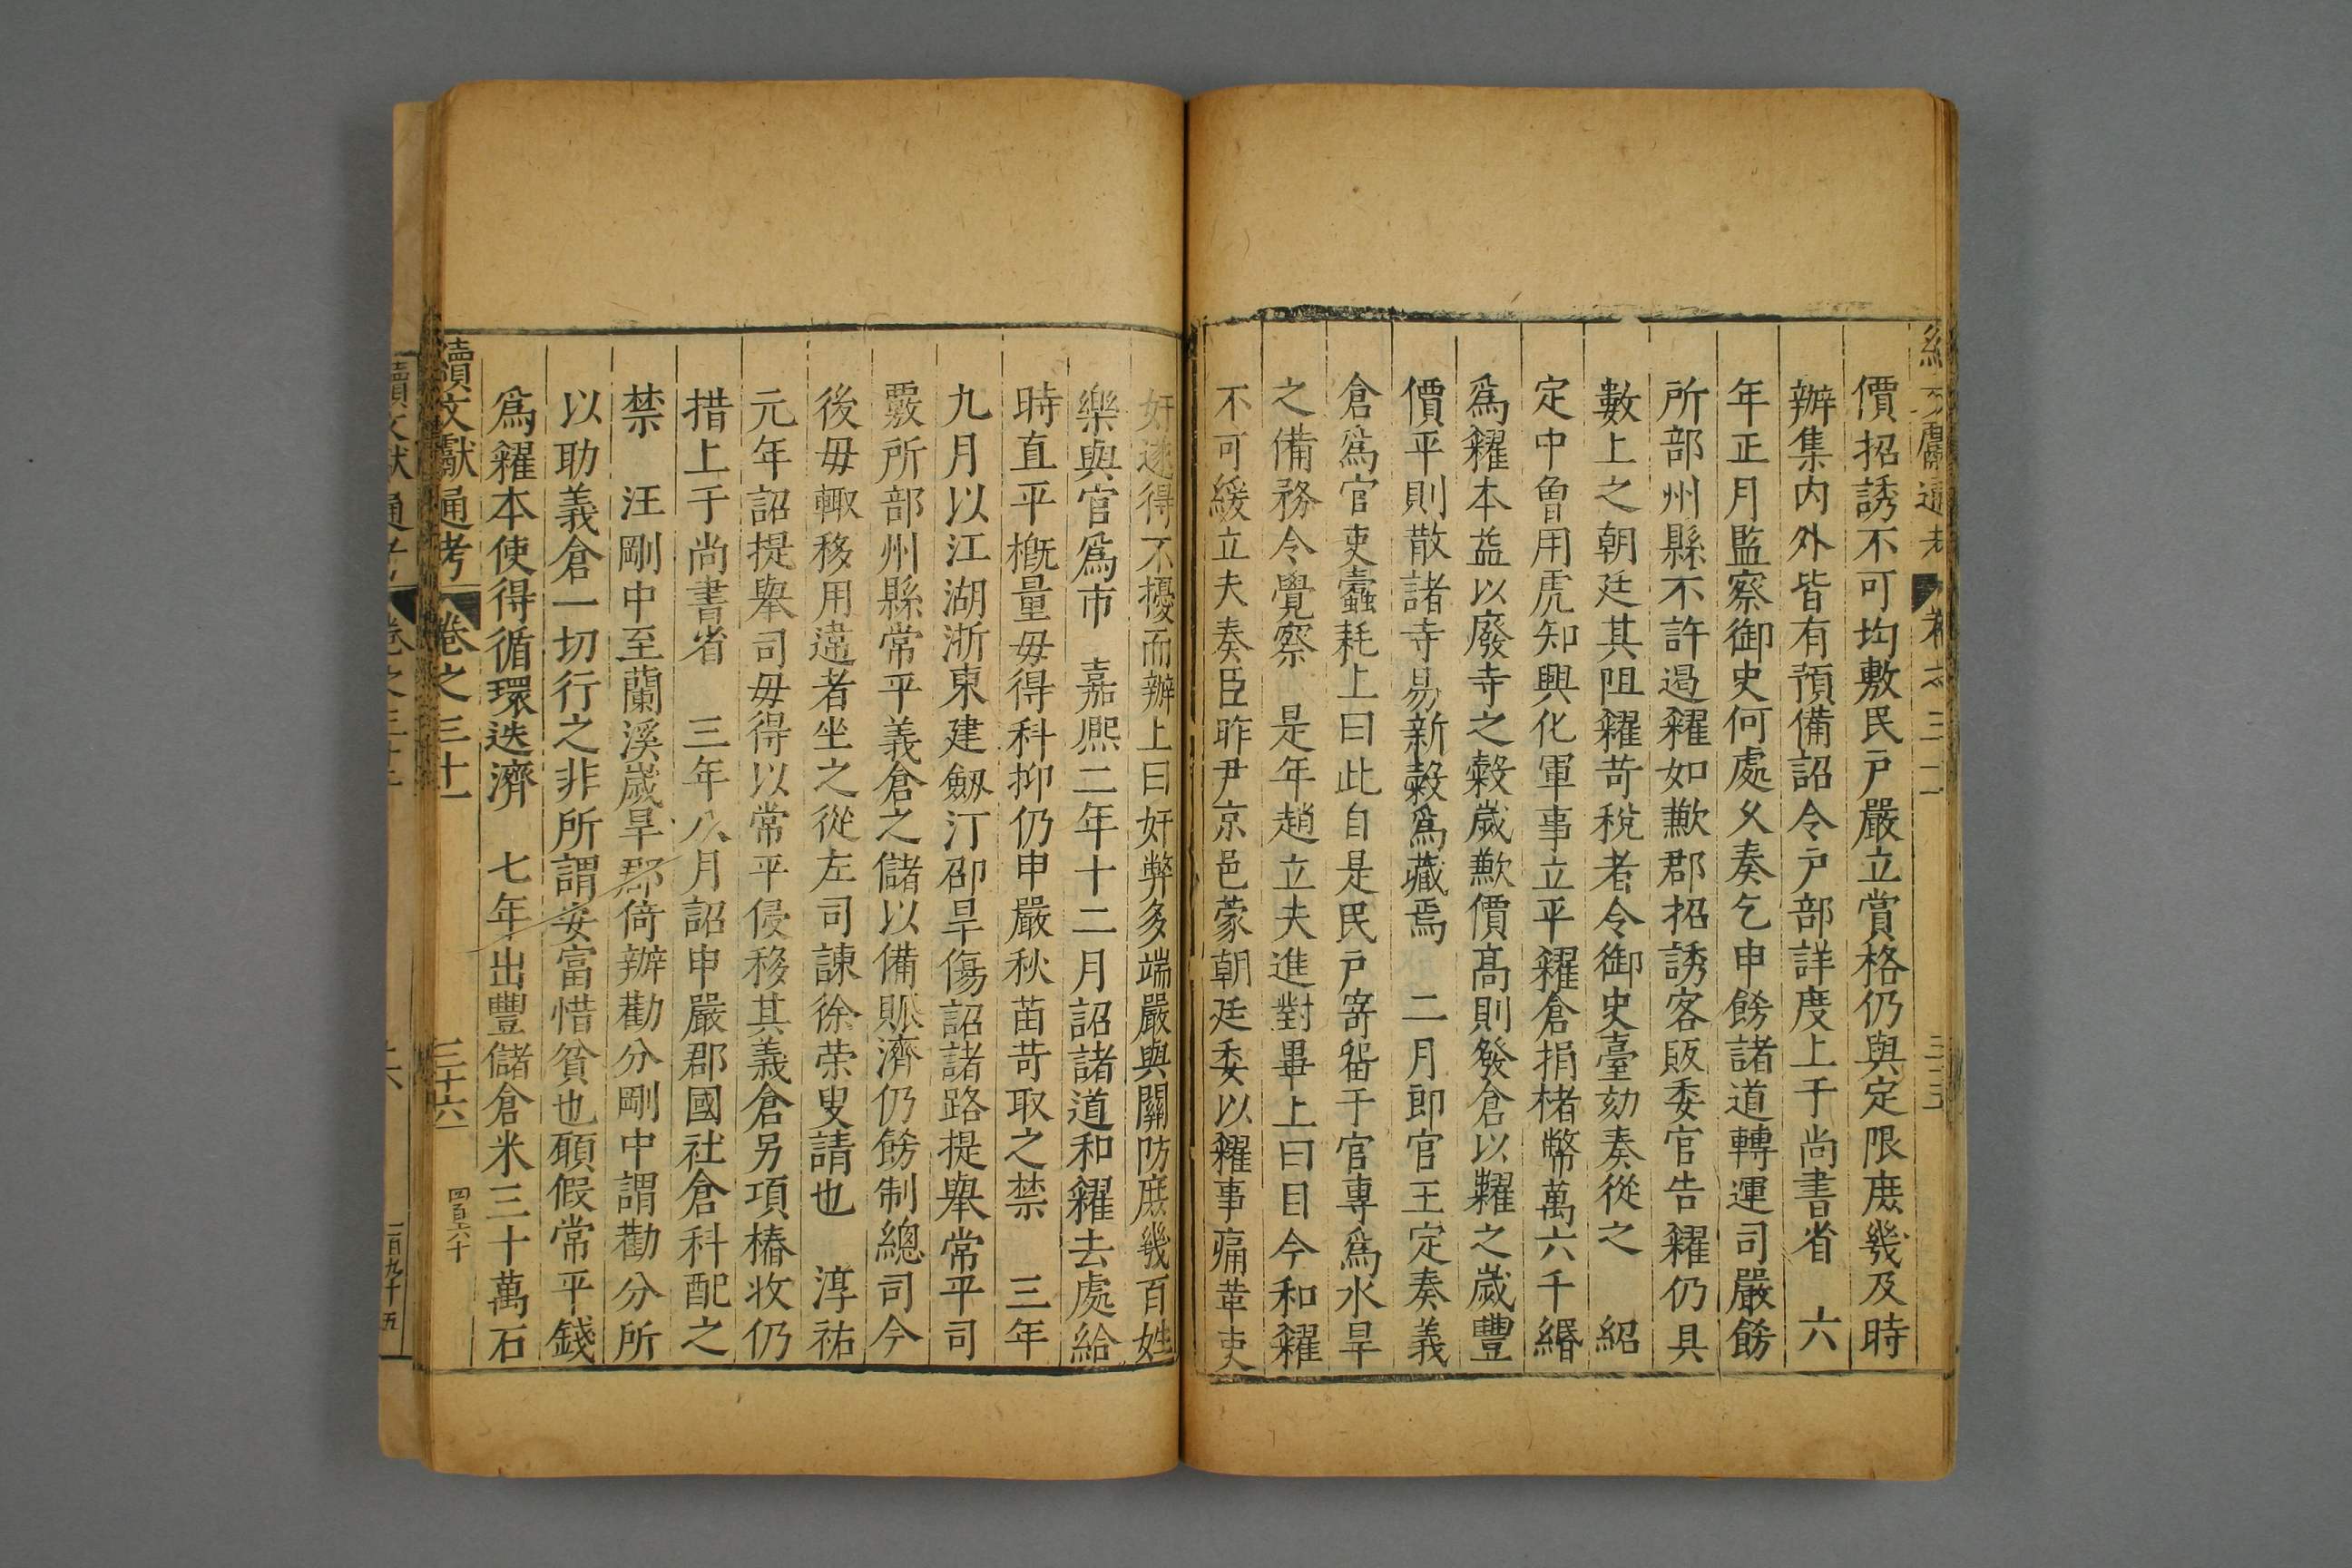 價招誘不可均敷民戸嚴立賞格仍與定限庶幾及時
辦集内外皆有預備詔令戸部詳度上于尚書省　六
年正月監察御史何處久奏乞申餝諸道轉運司嚴餝
所部州縣不許遏糴如歉郡招誘客販委官告糴仍具
數上之朝廷其阻糴苛稅者令御史臺劾奏從之　紹
定中曾用虎知興化軍事立平糴倉捐楮幣萬六千緡
爲糴本益以廢寺之穀歲歉價髙則發倉以糶之歲豐
價平則散諸寺易新穀爲藏焉　二月郎官王定奏義
倉爲官吏蠹耗上曰此自是民戸寄留于官專爲水旱
之備務令覺察　是年趙立夫進對畢上曰目今和糴
不可緩立夫奏臣昨尹京邑蒙朝廷委以糴事痛革吏
奸遂得不擾而辦上曰奸弊多端嚴與關防庶幾百姓
樂與官爲市　嘉熙二年十二月詔諸道和糴去處給
時直平概量毋得科抑仍申嚴秋苗苛取之禁　三年
九月以江湖浙東建劔汀邵旱傷詔諸路提舉常平司
覈所部州縣常平義倉之儲以備賑濟仍餝制總司今
後毋輙移用違者坐之從左司諫徐荣叟請也　淳祐
元年詔提舉司毋得以常平侵移其義倉另項樁收仍
措上于尚書省　三年八月詔申嚴郡國社倉科配之
禁　汪剛中至蘭溪歲旱郡倚辦勸分剛中謂勸分所
以助義倉一切行之非所謂安富惜貧也願假常平錢
爲糴本使得循環迭濟　七年出豐儲倉米三十萬石
續文獻通考　卷之三十一　三十六　四百六十